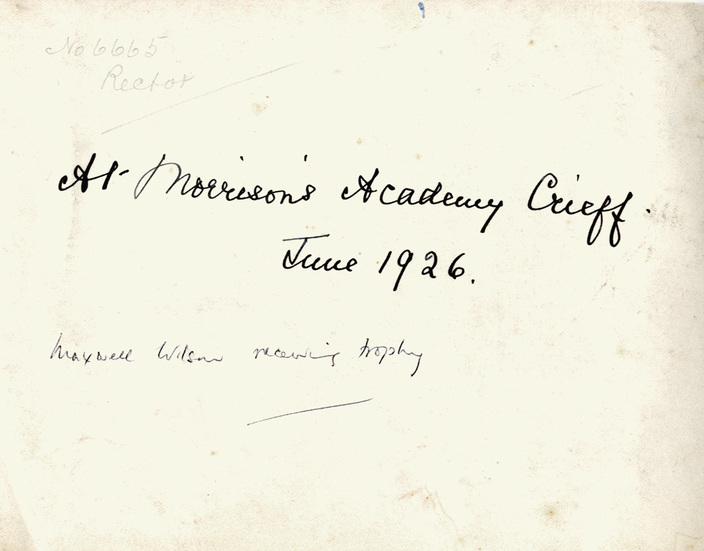 No 6665
Rector
At Morrison's Academy Crieff.
June 1926.
Maxwell Wilson receiving trophy